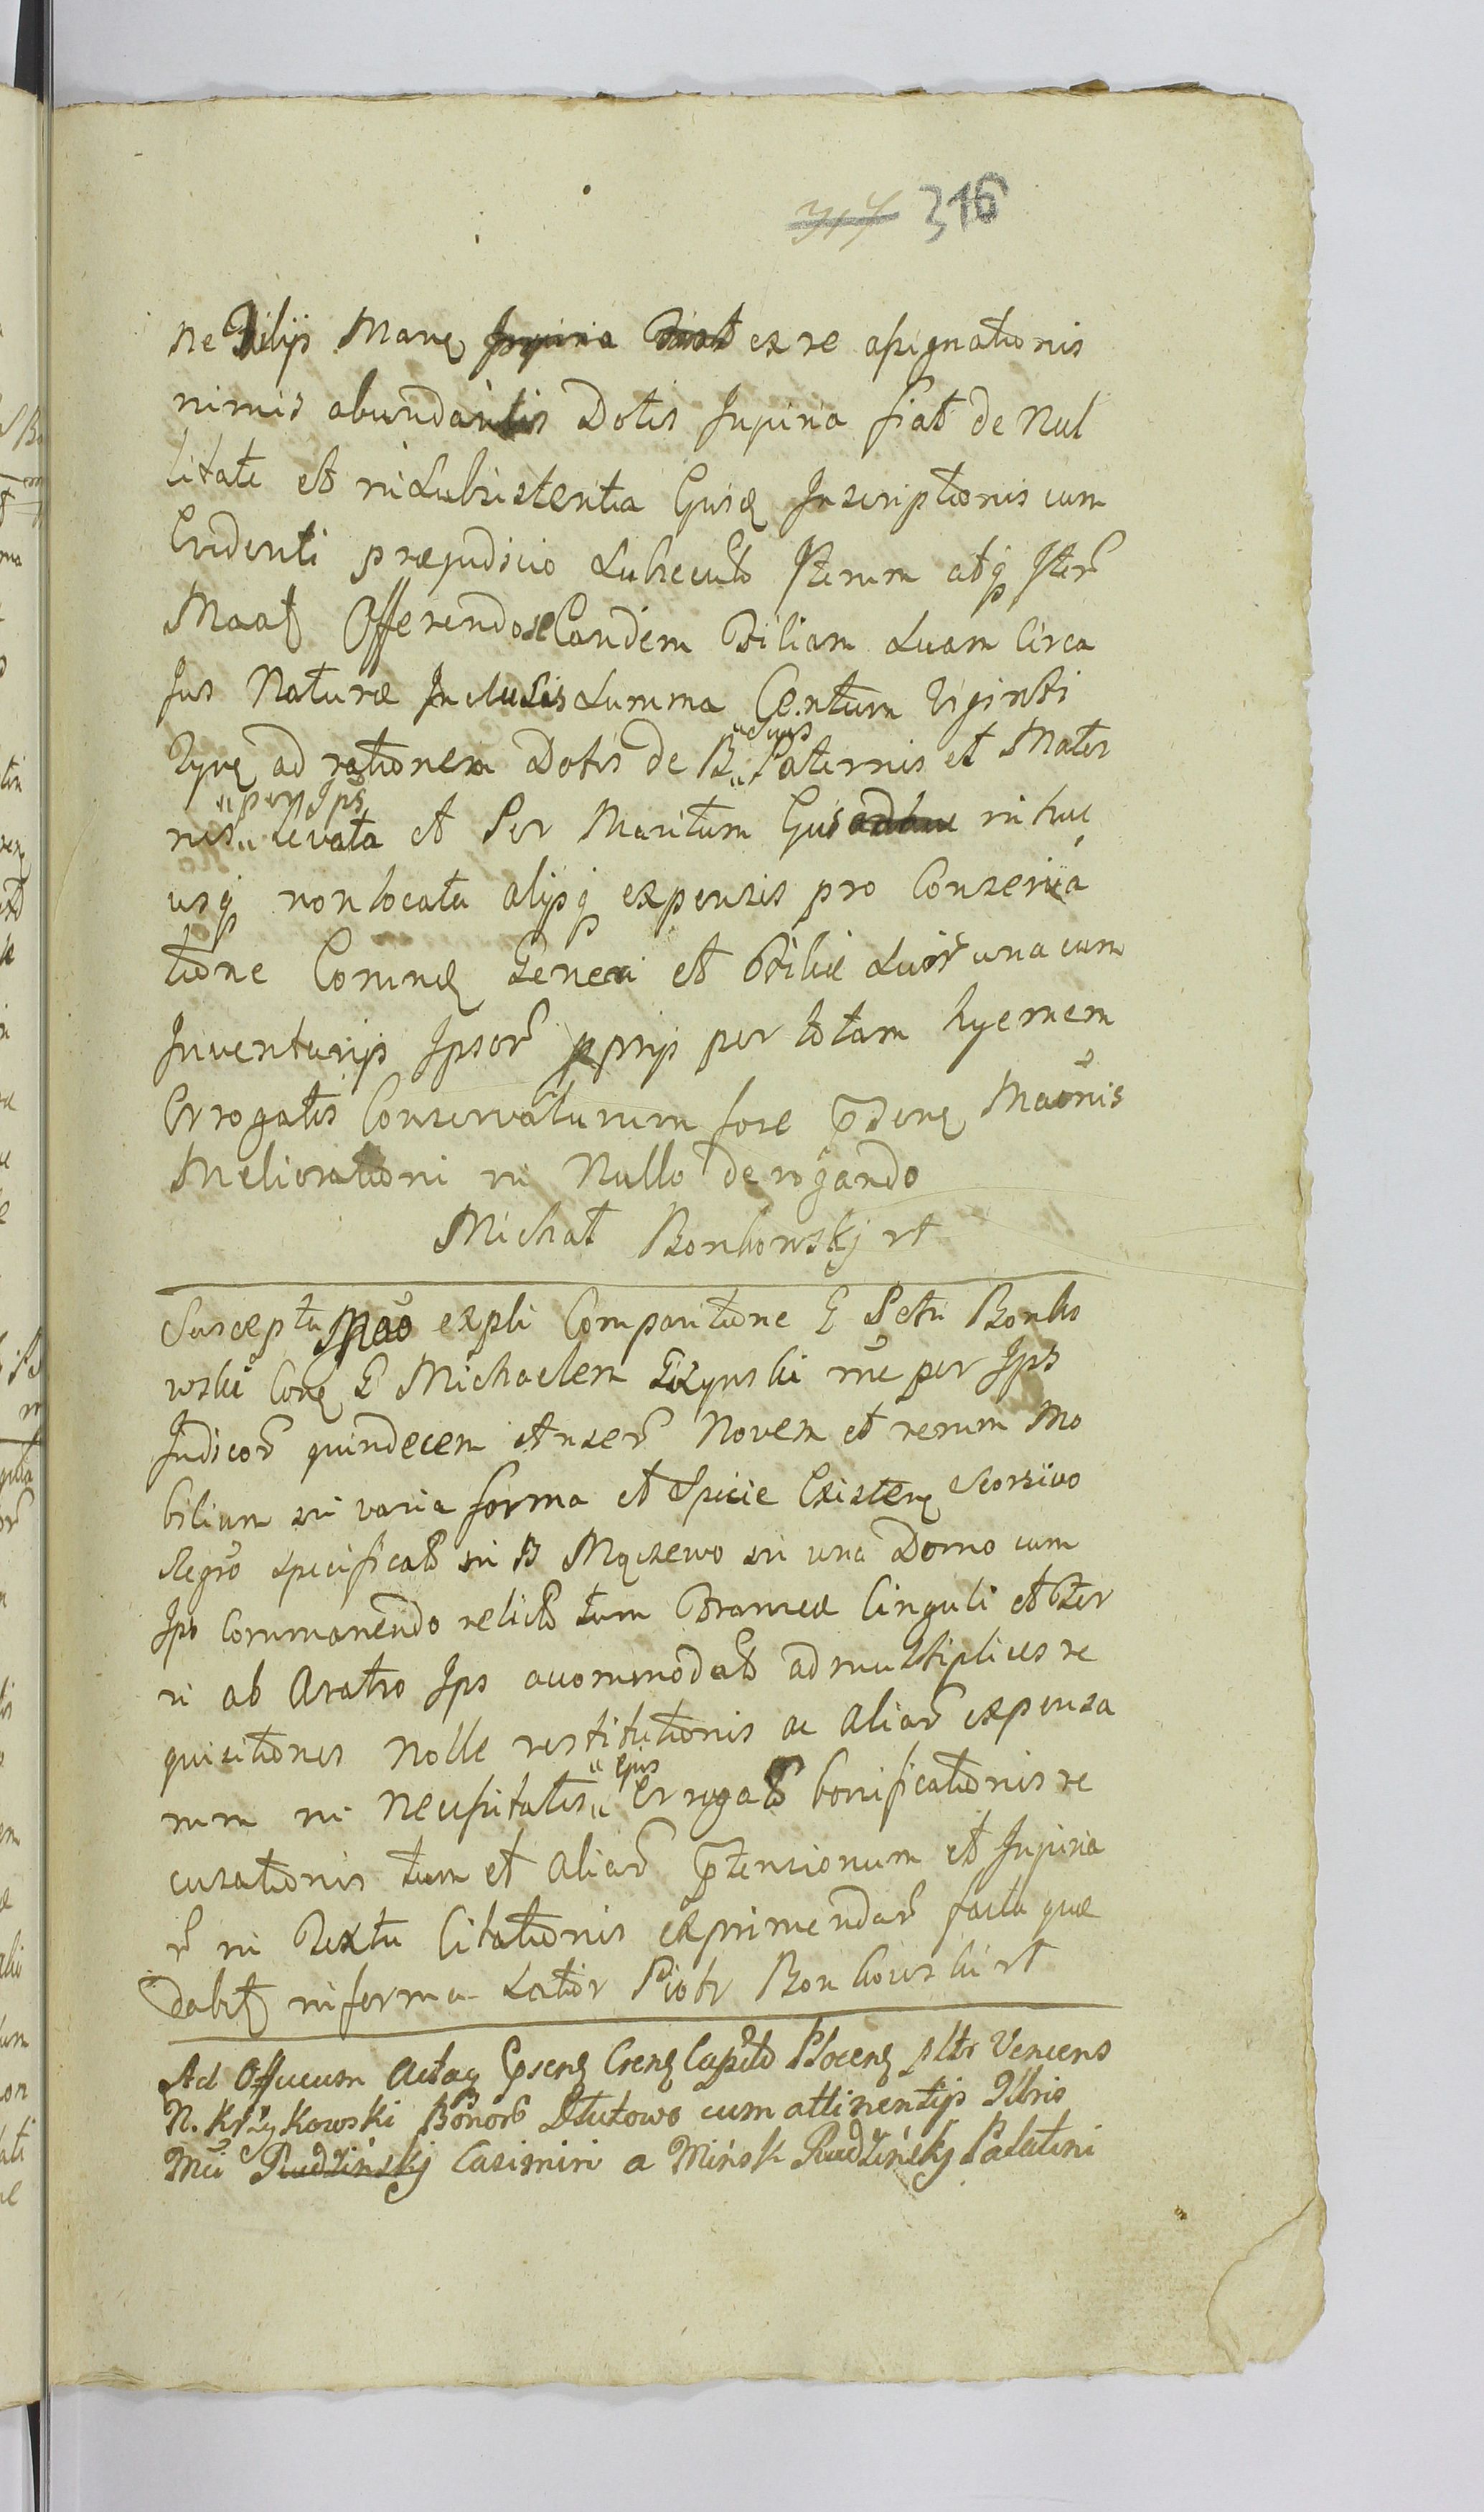 317 316
ne Filijs Manę Injuria fiat ex re assignationis
nimis abundantis Dotis Injuria fiat de Nul
litate et in Subsistentia Ejusd Inscriptionis cum
Evidenti præjudicio Subsecuto Iterum atq Iter
Maaſ Offerendo se Eandem Filiam Suam Circa
Jus Naturæ Inclusis Summa Centum Viginti
ad rationem Dotis de B Paternis et Mater
nis per Ips levata et Per Maritum Ejus adhuc in huc
usq non locata alijsq expensis pro Conserva
tione Generi et Filiæ Suor una cum
Inventarijs Ipsor pprijs per totam hyemem
Errogatis Conservaturum fore Maonis
Meliorationi in Nullo derogando
Michał Bonkowskj rt
Suscepta Mao expli Comparitione G Petri Bonko
wski G Michaelem per Ips
Judicor quindecem Anser Novem et rerum Mo
bilium in varia forma et Specie Existen Seorsivo
Regro specificat in B in una Domo cum
Ipso Commanendo relict tum Frameæ Cinguli et Fer
ri ab Aratro Ips accommodat ad multiplices re
quisitiones Nolle restitutionis ac Aliar expensa
rum in Necessitates ejus Errogat bonificationis re
cusationis tum et Aliar ptensionum et Injuria
r in Textu Citationis exprimendar facta quæ
Dabit in forma Lator Piotr Bonkowski rt
Ad Officium Actaq Capit Plocen pltr Veniens
N. Krzykowski Bonor Dłutowo cum attinentijs Illris
Mci Rudzińskj Casimiri a Mińsk Rudzińskj Palatini